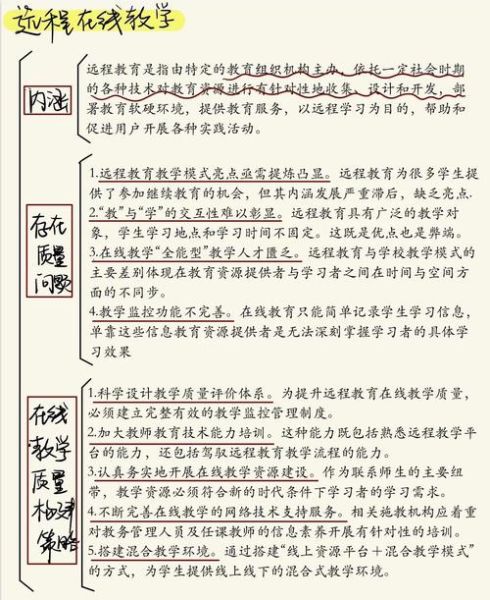 远程在线教学
内涵
远程教育是指由特定的教育组织机构主办、依托一定社会时期
的各种技术对教育资源进行有针对性地收集、设计和开发，部
署教育软硬环境，提供教育服务，以远程学习为目的，帮助和
促进用户开展各种实践活动。
存在
质量
问题
1.远程教育教学模式亮点亟需提炼凸显。远程教育为很多学生提
供了参加继续教育的机会，但其内涵发展严重滞后，缺乏亮点.
2.“教”与“学”的交互性难以彰显。远程教育具有广泛的教学对
象，学生学习地点和学习时间不固定。这既是优点也是弊端。
3.在线教学“全能型”教学人才匮乏。远程教育与学校教学模式的
主要差别体现在教育资源提供者与学习者之间在时间与空间方
面的不同步。
4.教学监控功能不完善。在线教育只能简单记录学生学习信息，
单靠这些信息教育资源提供者是无法深刻掌握学习者的具体学
习效果
在线
教学
质量
构建
策略
1.科学设计教学质量评价体系。为提升远程教育在线教学质量，
必须建立完整有效的教学监控管理制度。
2.加大教师教育技术能力培训。这种能力既包括熟悉远程教学平
台的能力，还包括驾驭远程教育教学流程的能力。
3.认真务实地开展在线教学资源建设。作为联系师生的主要纽
带，教学资源必须符合新的时代条件下学习者的学习需求。
4.不断完善在线教学的网络技术支持服务。相关施教机构应着重
对教务管理人员及任课教师的信息素养开展有针对性的培训。
5.搭建混合教学环境。通过搭建“线上资源平台＋混合教学模式”
的方式，为学生提供线上线下的混合式教学环境。